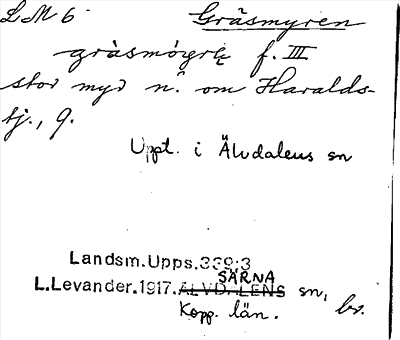 LM 6 Gräsmyren
gràsmó̀yrę f. III
stor myr n. om Haralds-
tj., 9.
Uppt. i Älvdalens sn
Landsm.Upps.339:3
SÄRNA
L.Levander.1917.ÄLVDALENS sn,
Kopp. län. br.